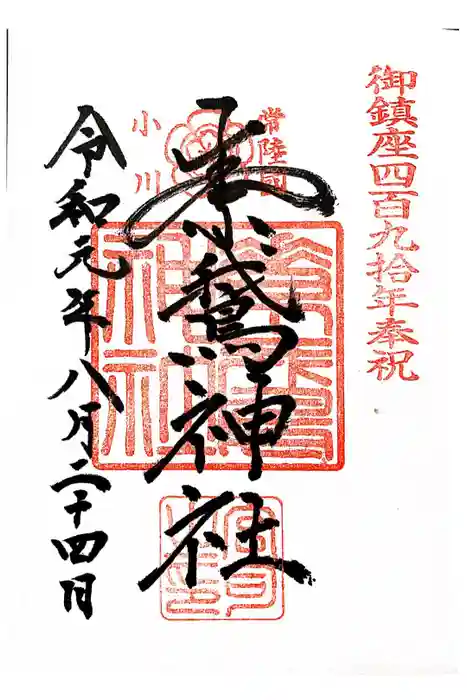 御鎮座四百九拾年奉祝
常陸国
小川
素鵞神社
令和元年八月二十四日